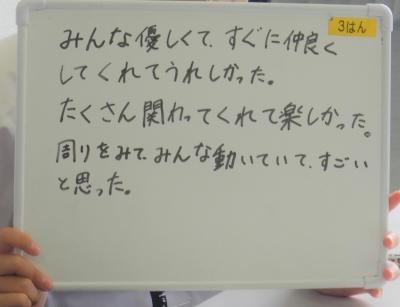 3はん
みんな優しくて、すぐに仲良く
してくれてうれしかった。
たくさん関わってくれて楽しかった。
周りをみて、みんな動いていて、すごい
と思った。